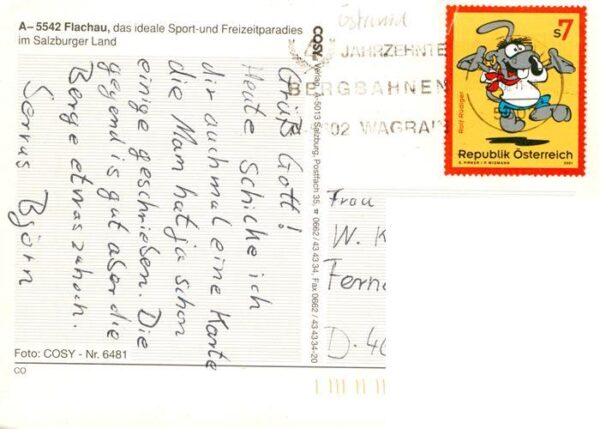 A–5542 Flachau, das ideale Sport-und Freizeitparadies
im Salzburger Land
Grüß Gott!
Heute schicke ich
dir auch mal eine Karte
die Mam hat ja schon
einige geschrieben. Die
gegend is gut aber die
Berge etwas zu hoch.
Servus Björn
Foto: COSY - Nr. 6481
CO
COSY Verlag, A-5013 Salzburg, Postfach 35, ☎ 0662/43 43 34, Fax 0662/43 43 34-20
JAHRZEHNTE
BERGBAHNEN
WAGRAI
s7
Rolf Rüdiger
Republik Österreich
2001
Frau
W. K
Fern
D-40